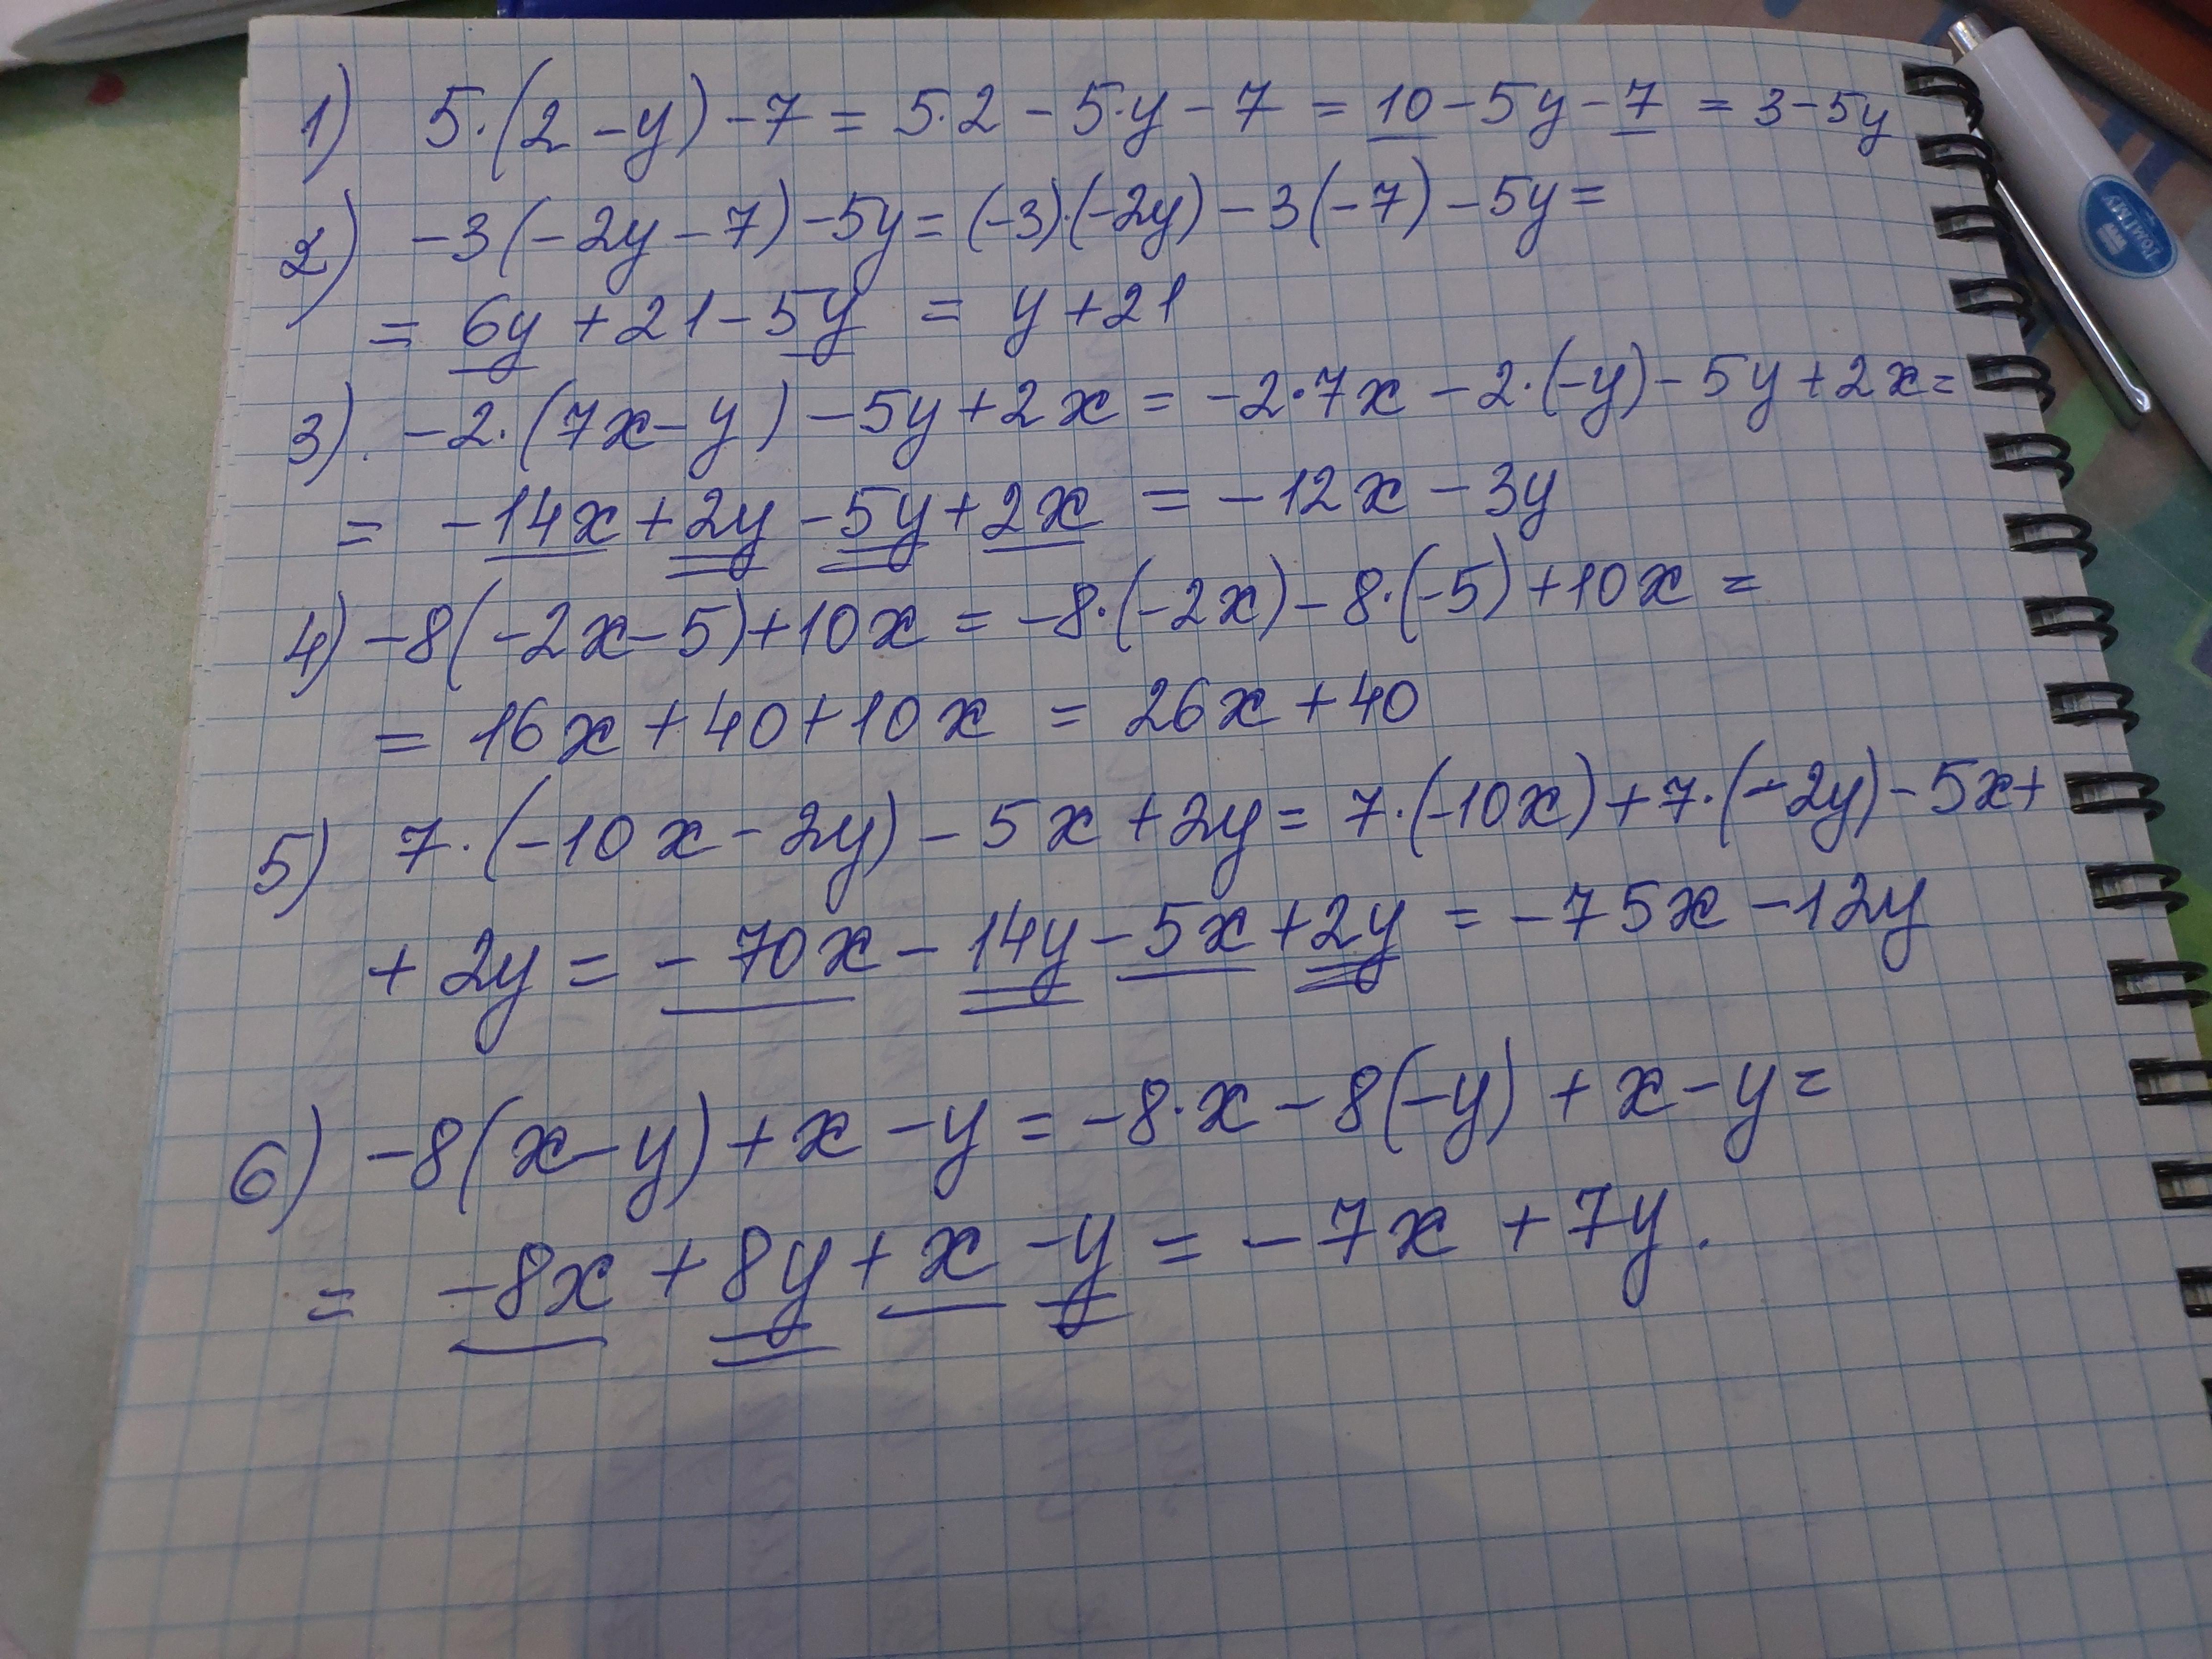 1) 5·(2-y)-7 = 5·2 - 5·y - 7 = 10 - 5y - 7 = 3-5y
2) -3(-2y-7)-5y = (-3)·(-2y) - 3(-7) - 5y =
= 6y + 21 - 5y = y + 21
3). -2·(7x-y) - 5y + 2x = -2·7x - 2·(-y) - 5y + 2x =
= -14x + 2y - 5y + 2x = -12x - 3y
4) -8(-2x-5)+10x = -8·(-2x) - 8·(-5) + 10x =
= 16x + 40 + 10x = 26x + 40
5) 7·(-10x - 2y) - 5x + 2y = 7·(-10x) + 7·(-2y) - 5x +
+ 2y = -70x - 14y - 5x + 2y = -75x - 12y
6) -8(x-y) + x - y = -8·x - 8(-y) + x - y =
= -8x + 8y + x - y = -7x + 7y.